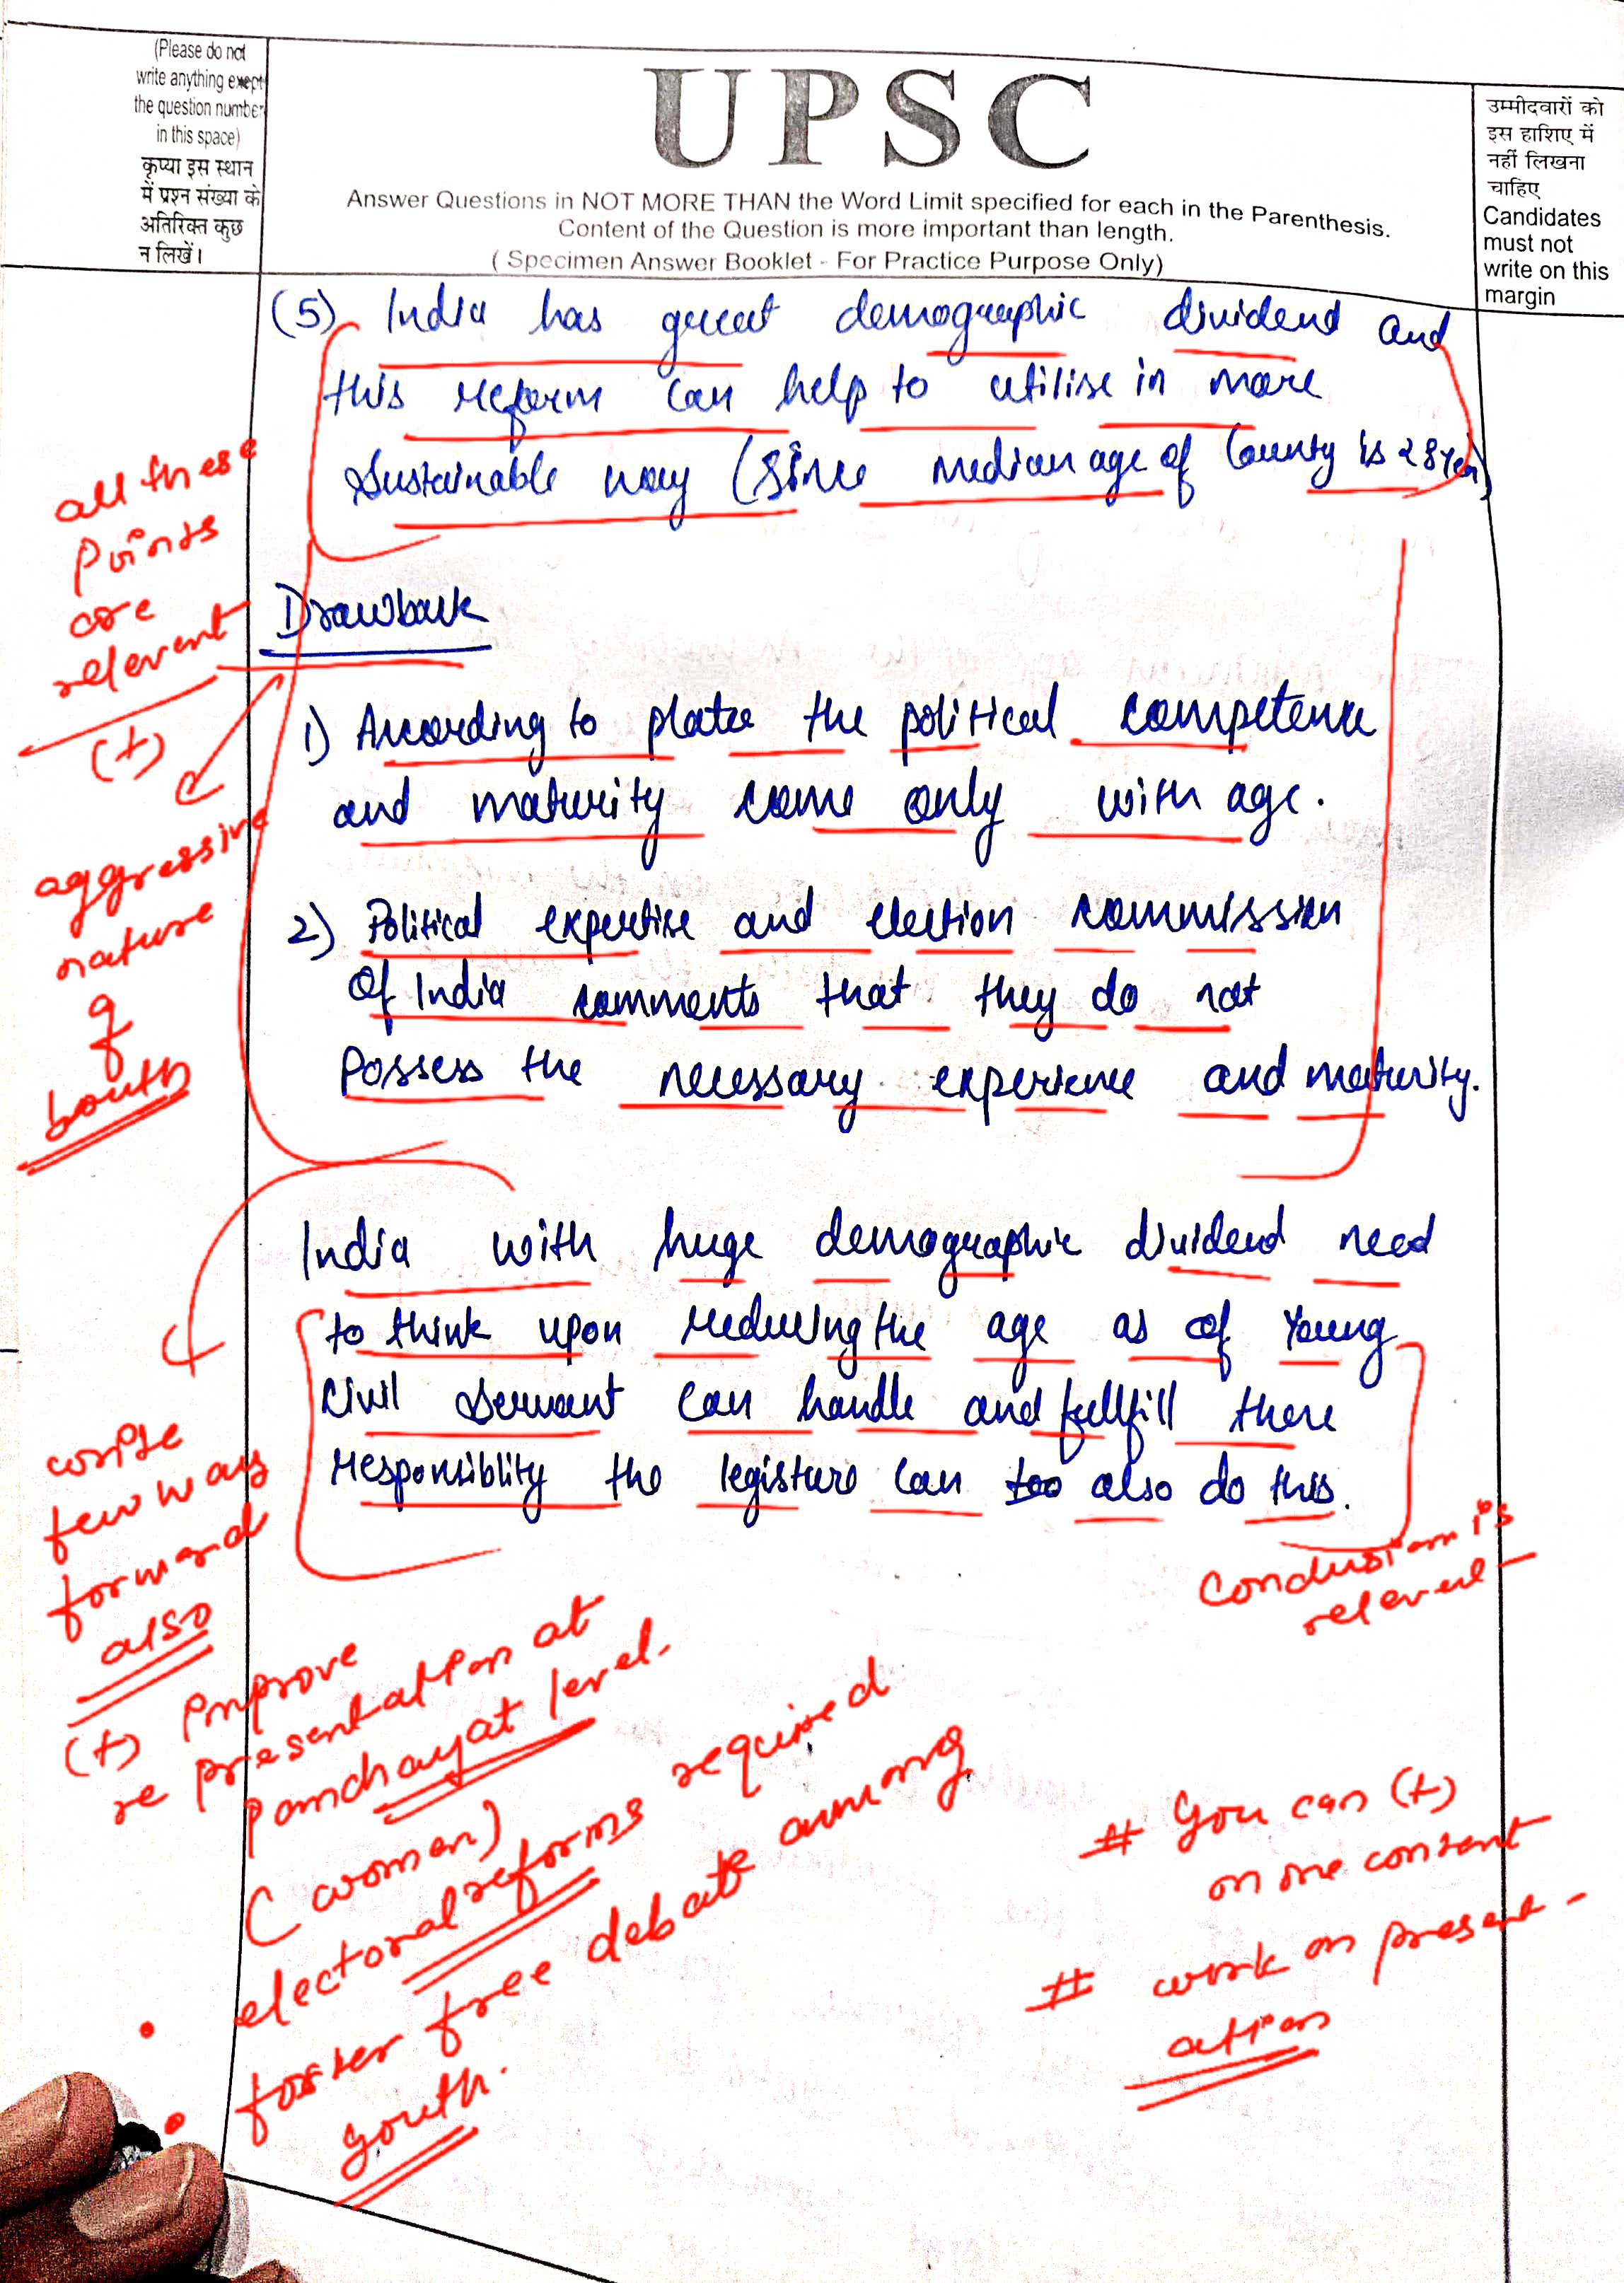 (Please do not
write anything exept
the question number
in this space)
कृप्या इस स्थान
में प्रश्न संख्या के
अतिरिक्त कुछ
न लिखें।
UPSC
Answer Questions in NOT MORE THAN the Word Limit specified for each in the Parenthesis.
Content of the Question is more important than length.
( Specimen Answer Booklet - For Practice Purpose Only)
उम्मीदवारों को
इस हाशिए में
नहीं लिखना
चाहिए
Candidates
must not
write on this
margin
(5) India has great demographic dividend and
this reform can help to utilise in more
Sustainable way (Since median age of County is 28 Year)
all these
points
are
relevent
(+)
aggressive
nature
of
youth
Drawback
1) According to platee the political competence
and maturity come only with age.
2) Political expertise and election commission
Of India comments that they do not
Possess the necessary experience and maturity.
India with huge demographic dividend need
to think upon reducing the age as of Young
Civil Servant can handle and fullfill there
responsiblity the legisture can too also do this.
Conclusion is
relevent
write
few ways
forward
also
(+) improve
representation at
panchayat level.
(women)
• electoral reforms required
• foster free debate among
youth.
# you can (+)
on one content
# work on present-
ation